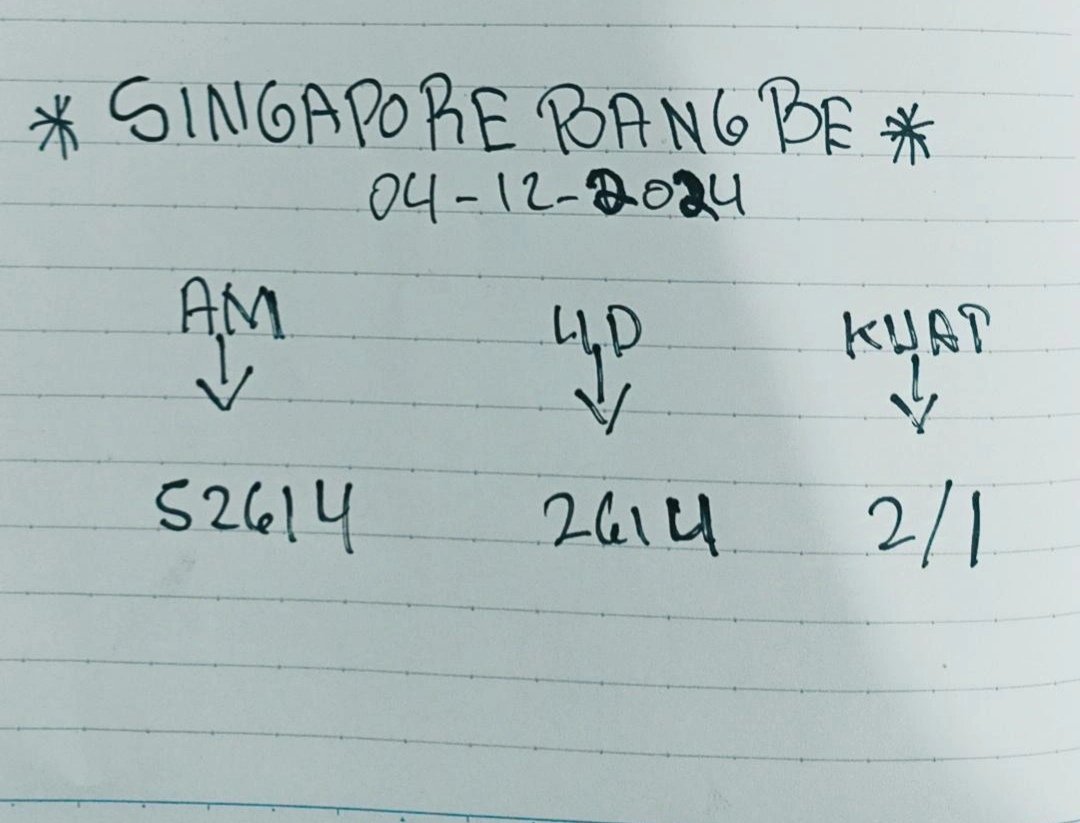 * SINGAPORE BANG BE *
04-12-2024
AM 4D KUAT
↓ ↓ ↓
52614 2614 2/1